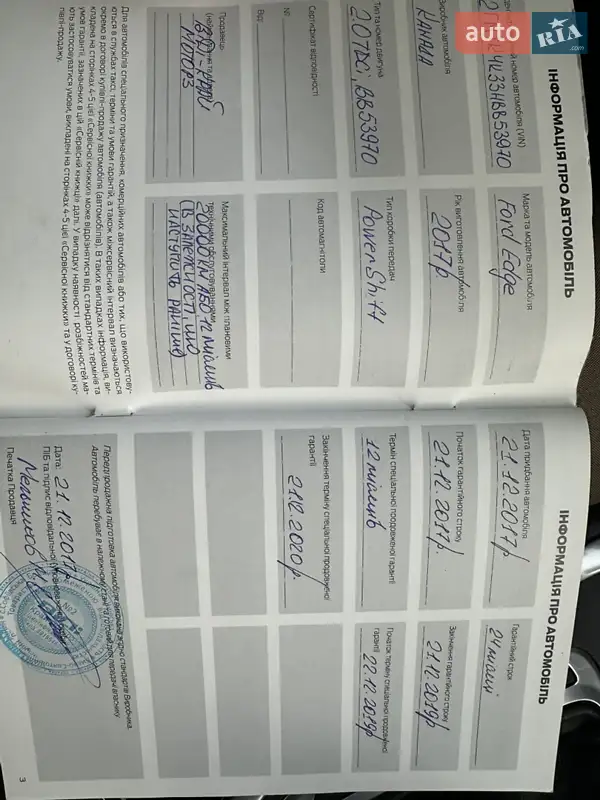 auto RIA.com
ІНФОРМАЦІЯ ПРО АВТОМОБІЛЬ
номер автомобіля (VIN)
Марка та модель автомобіля
Ford Edge
Виробник автомобіля
КАНАДА
Рік виготовлення автомобіля
2017р.
Тип та номер двигуна
2.0TDCi, BB53970
Тип коробки передач
PowerShift
Сертифікат відповідності
№
Від
Код автомагнітоли
Продавець
МОТОРЗ
Максимальний інтервал між плановими
технічними обслуговуваннями
20000км АБО 12 місяців
(В ЗАЛЕЖНОСТІ, ЩО
НАСТУПИТЬ РАНІШЕ)
Для автомобілів спеціального призначення, комерційних автомобілів або тих, що використову-
ються в службах таксі, терміни та умови гарантій, а також міжсервісний інтервал визначаються
окремо в договорі купівлі-продажу автомобіля (автомобілів). В таких випадках інформація, ви-
кладена на сторінках 4-5 цієї «Сервісної книжки» може відрізнятися від стандартних термінів та
умов гарантії, зазначених в цій «Сервісній книжці» далі. У випадку наявності розбіжностей ма-
ють застосовуватися умови, викладені на сторінках 4-5 цієї «Сервісної книжки» та у договорі ку-
півлі-продажу.
ІНФОРМАЦІЯ ПРО АВТОМОБІЛЬ
Дата придбання автомобіля
21.12.2017р
Гарантійний строк
24 місяці
Початок гарантійного строку
21.12.2017р.
Закінчення гарантійного строку
21.12.2019р
Термін спеціальної продовженої гарантії
12 місяців
Початок терміну спеціальної продовженої
гарантії
22.12.2019р
Закінчення терміну спеціальної продовженої
гарантії
21.12.2020р.
Передпродажна підготовка автомобіля виконана згідно стандартів Виробника.
Автомобіль перебуває в належному стані та готовий для передачі власнику
Дата: 21.12.2017р
ПІБ та підпис відповідальної
Печатка Продавця
3